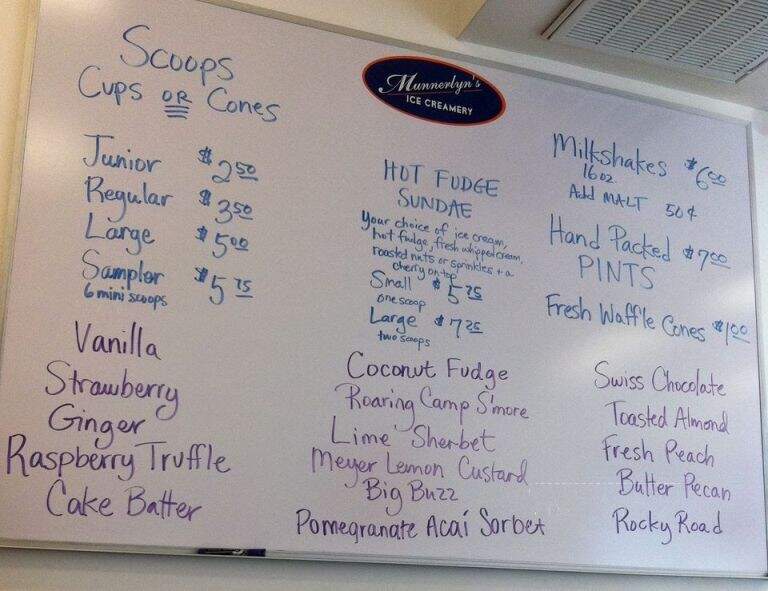 Scoops
Cups OR Cones
Junior $2.50
Regular $3.50
Large $5.00
Sampler $5.75
6 mini scoops
Vanilla
Strawberry
Ginger
Raspberry Truffle
Cake Batter
Munnerlyn's
ICE CREAMERY
HOT FUDGE
SUNDAE
Your choice of ice cream,
hot fudge, fresh whipped cream,
roasted nuts or sprinkles + a
cherry on top
Small $5.25
one scoop
Large $7.25
two scoops
Coconut Fudge
Roaring Camp S'more
Lime Sherbet
Meyer Lemon Custard
Big Buzz
Pomegranate Acaí Sorbet
Milkshakes $6.00
16oz
Add MALT 50¢
Hand Packed $7.00
PINTS
Fresh Waffle Cones $1.00
Swiss Chocolate
Toasted Almond
Fresh Peach
Butter Pecan
Rocky Road